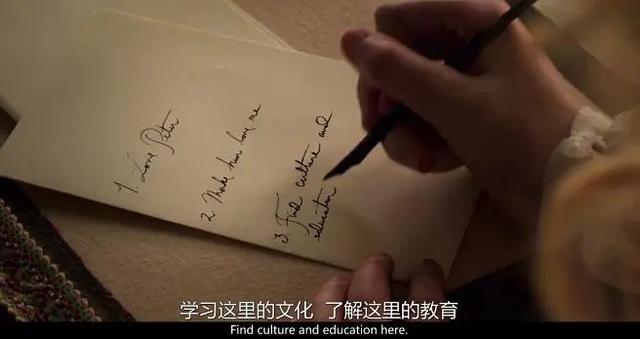 1. Love Peter
2. Make him love me
3. Find culture and
education
学习这里的文化 了解这里的教育
Find culture and education here.